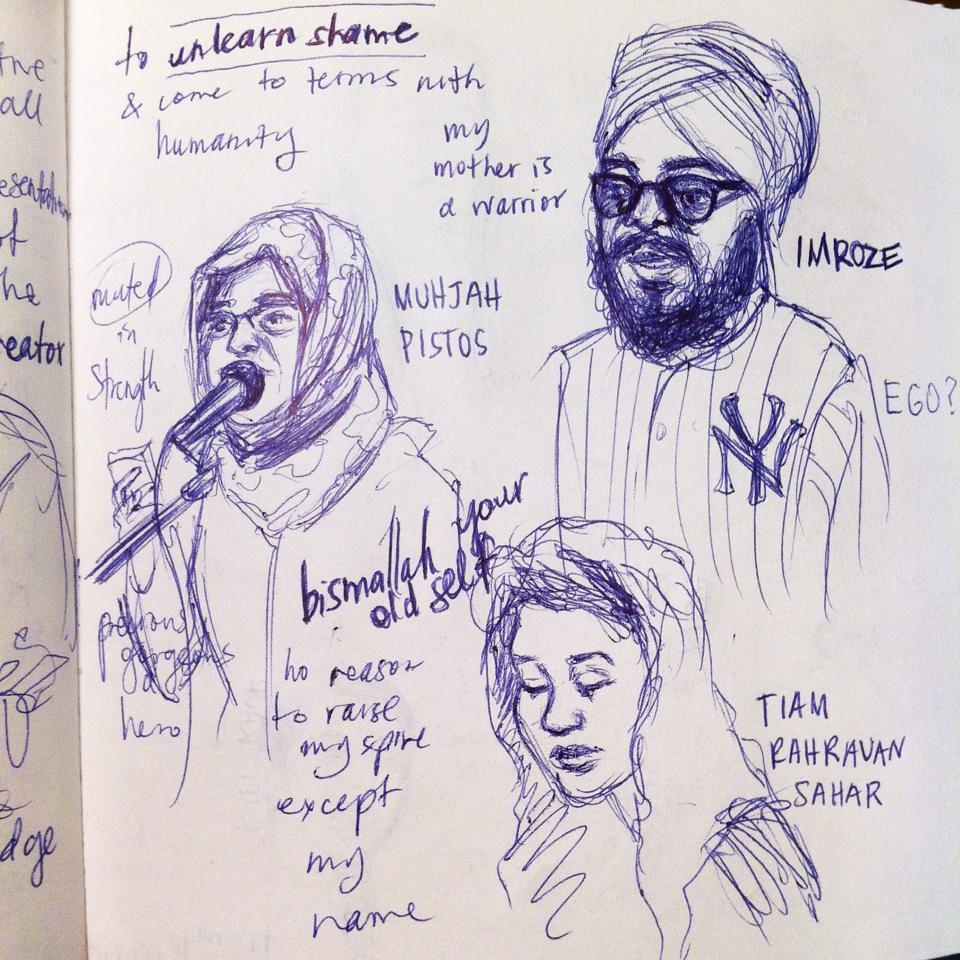 to unlearn shame
& come to terms with
humanity
my
mother is
a warrior
IMROZE
EGO?
NY
MUHJAH
PISTOS
muted
in
Strength
bismallah your
old self
precious
gorgeous
hero
no reason
to raise
my spire
except
my
name
TIAM
RAHRAVAN
SAHAR
all
of
he
eator
dge